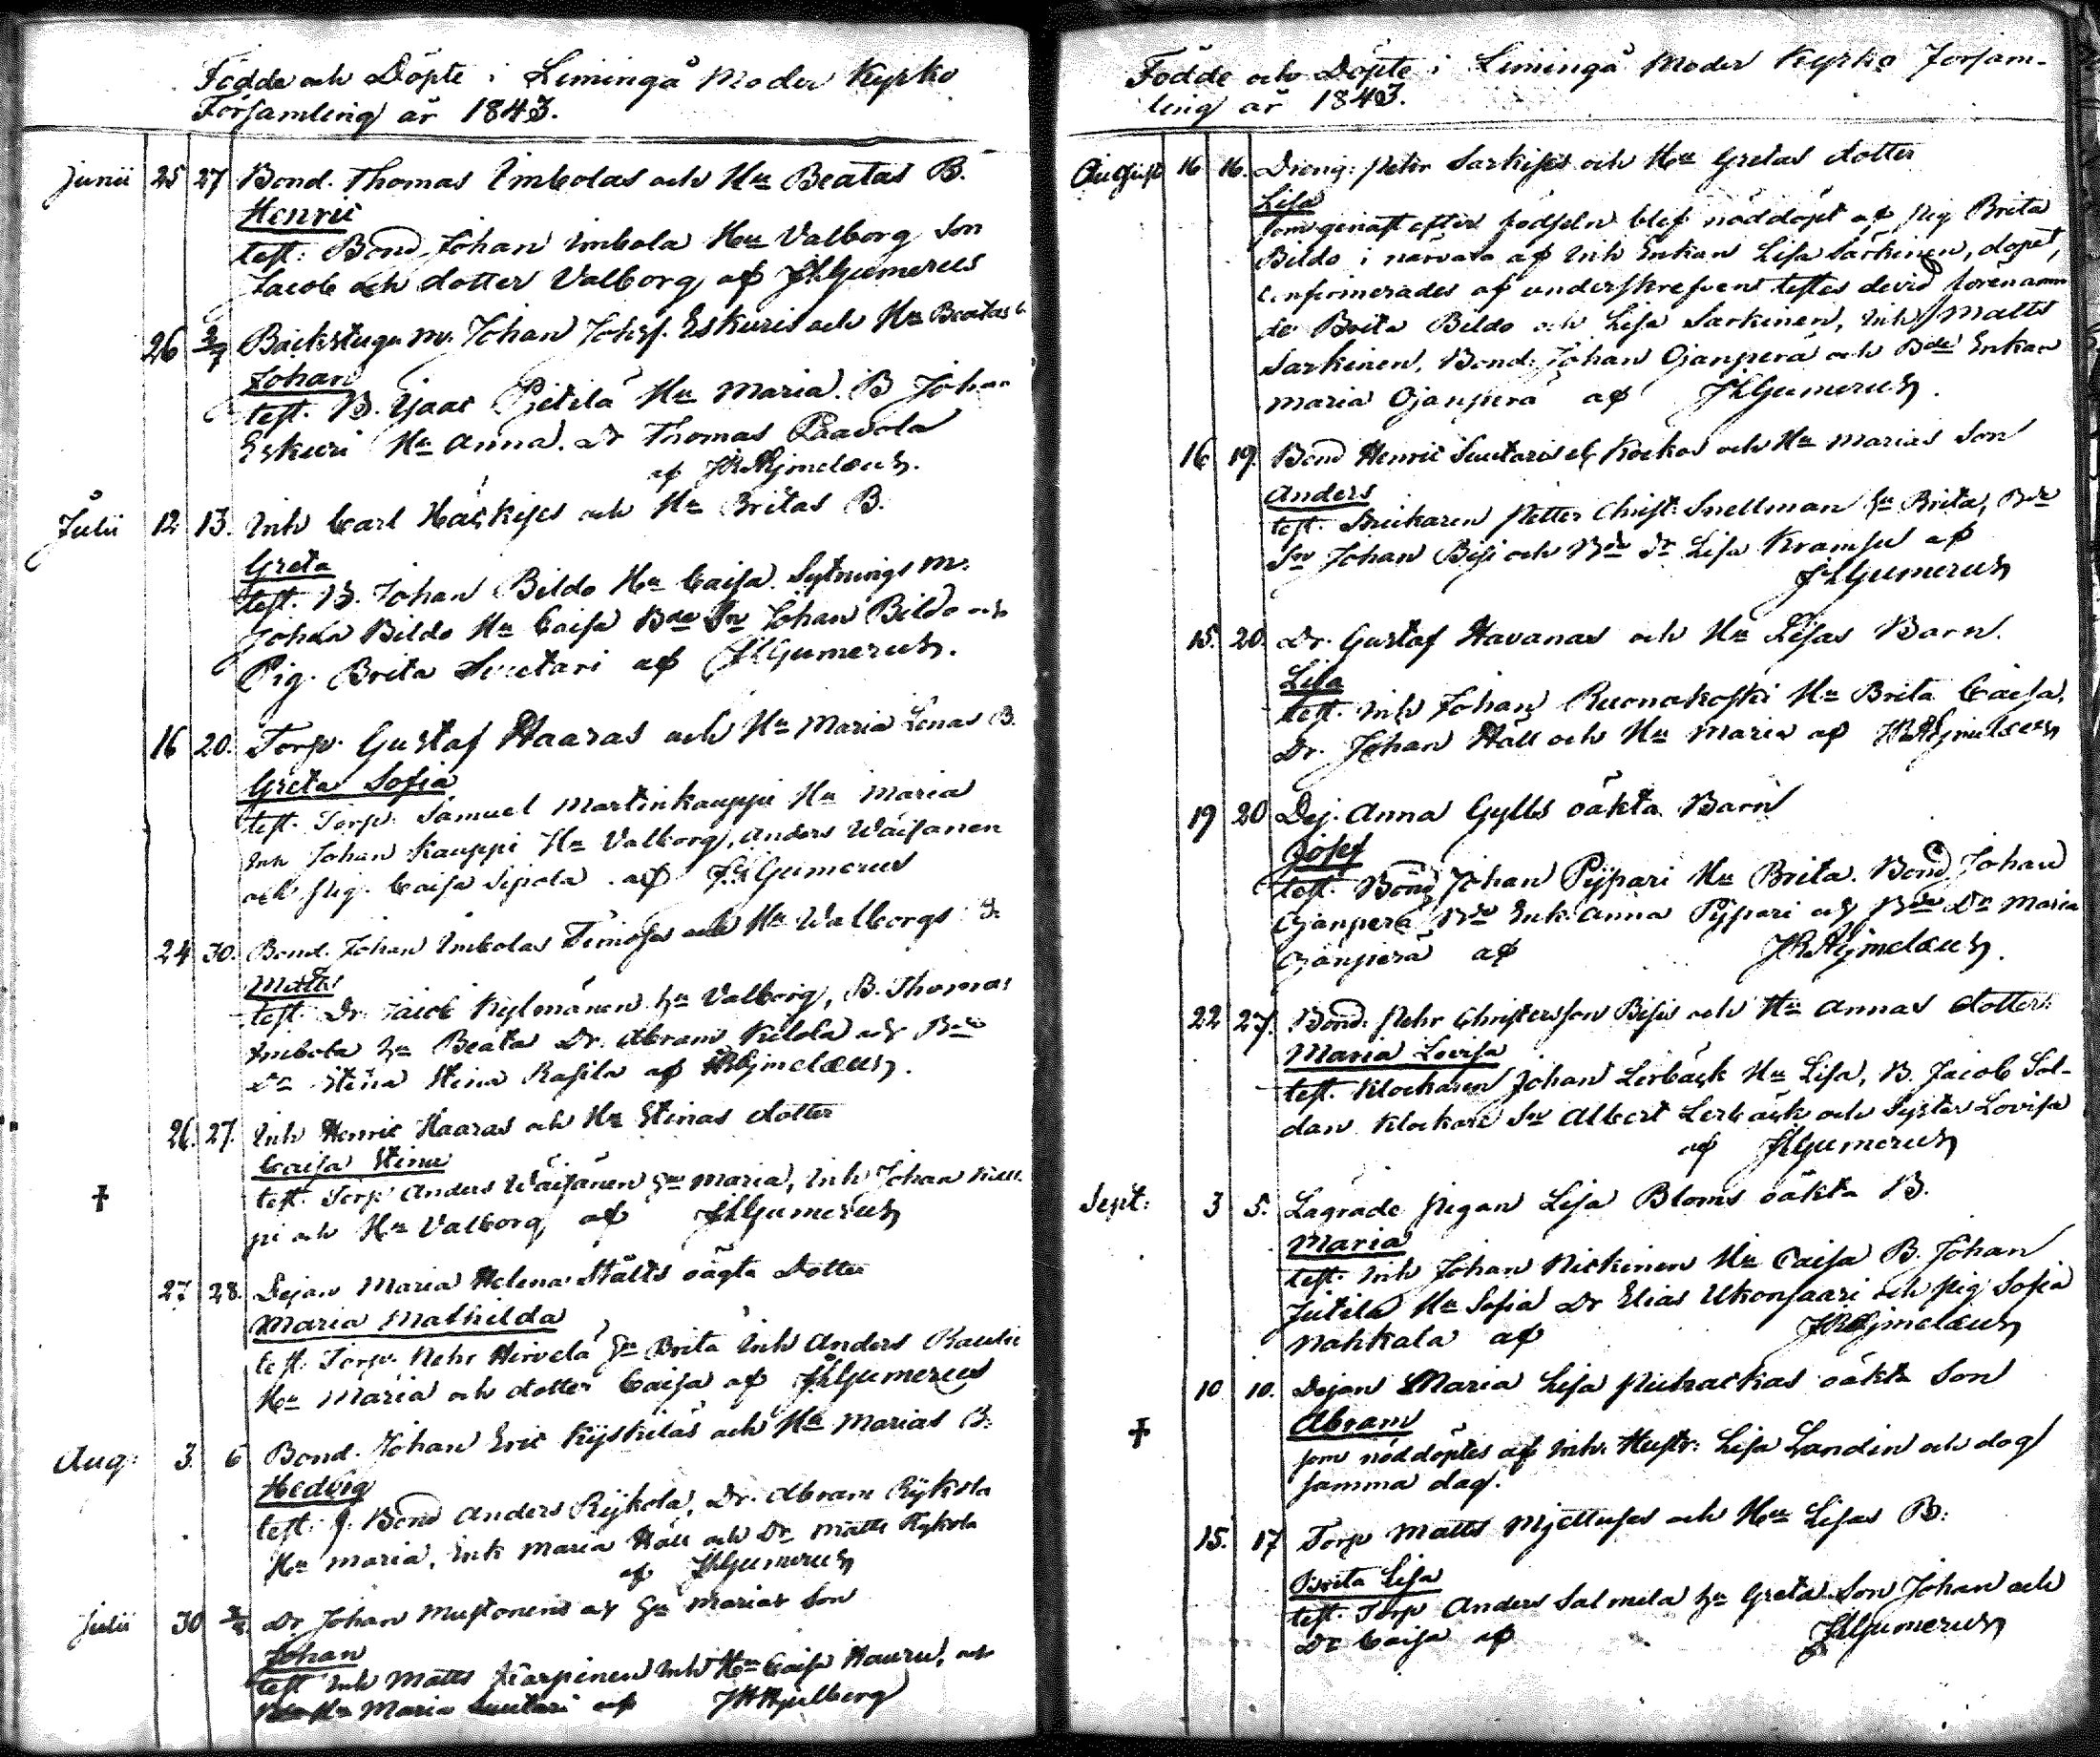 Födde och Döpte i Limingå Moder Kyrko
Församling år 1843.
Junii 25 27 Bond. Thomas Imbolas och Hu Beatas B.
Henric
test: Bond Johan Imbola Hu Valborg Son
Jacob och dotter Valborg af JHGumerus
26 2/7 Backstugu m. Johan Johsf. Eskuris och Hu Beatas
Johan
test. B. Isaac Pietilä Hu Maria. B Johan
Eskuri Hu Anna. Dr Thomas Paavola
af
Julii 12 13. Inh Carl Häikises och Hu Britas B.
Greta
test. B. Johan Bildo Hu Caisa. Sytnings M.
Johan Bildo Hu Caisa Bde Sn Johan Bildo och
Pig. Brita Suutari af JHGumerus.
16 20. Torp. Gustaf Haaras och Hu Maria Lenas B.
Greta Sofia
test. Torp. Samuel Martinkauppi Hu Maria
Inh Johan Kauppi Hu Valborg, Anders Wäisänen
och pig. Caisa Sipola af JHGumerus
24 30. Bond. Johan Imbolas och Hu Walborgs
Matts
test. Dr. Jacob Kylmänen hu Valborg, B. Thomas
Imbola hu Beata Dr. Abram Kilola och Bde
Dr Stina Stina Rasila af
26. 27. Inh Henric Haaras och Hu Stinas dotter
Caisa Stina
† test. Torp Anders Wäisänen hu Maria, Inh Johan Kau-
pi och Hu Valborg af JHGumerus
27 28. Dejan Maria Helena Ståhls oägta Dotter
Maria Mathilda
test. Torp. Pehr Hirvelä hu Brita Inh Anders
Hu Maria och dotter Caisa af JHGumerus
Aug: 3. 6 Bond. Johan Eric Kyskiläs och Hu Marias B:
Hedvig
test: f. Bond Anders Rykola, Dr. Abram Rykola
Hu Maria, Enk Maria Håll och Dr Matts Rykola
af JHGumerus
Julii 30 Dr Johan Mustonens och hu Marias Son
Johan
test Inh Matts Karpinen Inh Hu Caisa Hauru, och
Hu Maria Suutari af
Födde och Döpte i Limingå Moder Kyrko Försam-
ling år 1843.
August 16 16. Dreng: Petter Sarkises och Hu Gretas dotter
Lisa
som genast efter födseln blef nöddöpt af pig Brita
Bildo i närvaro af Inh Enkan Lisa Särkinen, dopet,
confirmerades af underskrefvens testes dervid förenämn
de Brita Bildo och Lisa Sarkinen, Inh Matts
Sarkinen, Bond: Johan Ojanperä och Bde Enkan
Maria Ojanperä af JHGumerus.
16 19. Bond Henric Suutaris el Kockos och Hu Marias Son
Anders
test. Snickaren Petter Christ: Snellman hu Brita, Bde
Sn Johan Bisi och Bde Dr Lisa Kramsu af
JHGumerus
15. 20. Dr. Gustaf Havanas och Hu Lisas Barn.
Lisa
test. Inh Johan Ruonakoski Hu Brita Caisa,
Dr. Johan Håll och Hu Maria af
19 20 Dej. Anna Gylls oäkta Barn
Josef
test. Bond Johan Pijpari Hu Brita. Bond Johan
Ojanperä Bde Enk. Anna Pijpari och Bde Dr Maria
Ojanperä af
22 27. Bond: Pehr Christersson Bisis och Hu Annas dotter:
Maria Lovisa
test. Klockaren Johan Lerbäck Hu Lisa, B. Jacob Sol-
dan Klockare Sn Albert Lerbäck och Syster Lovisa
af JHGumerus
Sept: 3 5. Lagrade pigan Lisa Bloms oäkta B.
Maria
test. Inh Johan Niskinen Hu Caisa B. Johan
Jutila Hu Sofia Dr Elias Ukonsaari och Pig Sofia
Nahkala af
10 10. Dejan Maria Lisa oäkta Son
Abram
† som nöddöptes af Inh. Hustr: Lisa Landin och dog
samma dag.
15. 17 Torp Matts Mjettuses och Hu Lisas B:
Brita Lisa
test. Torp Anders Salmela hu Greta Son Johan och
Dr Caisa af JHGumerus